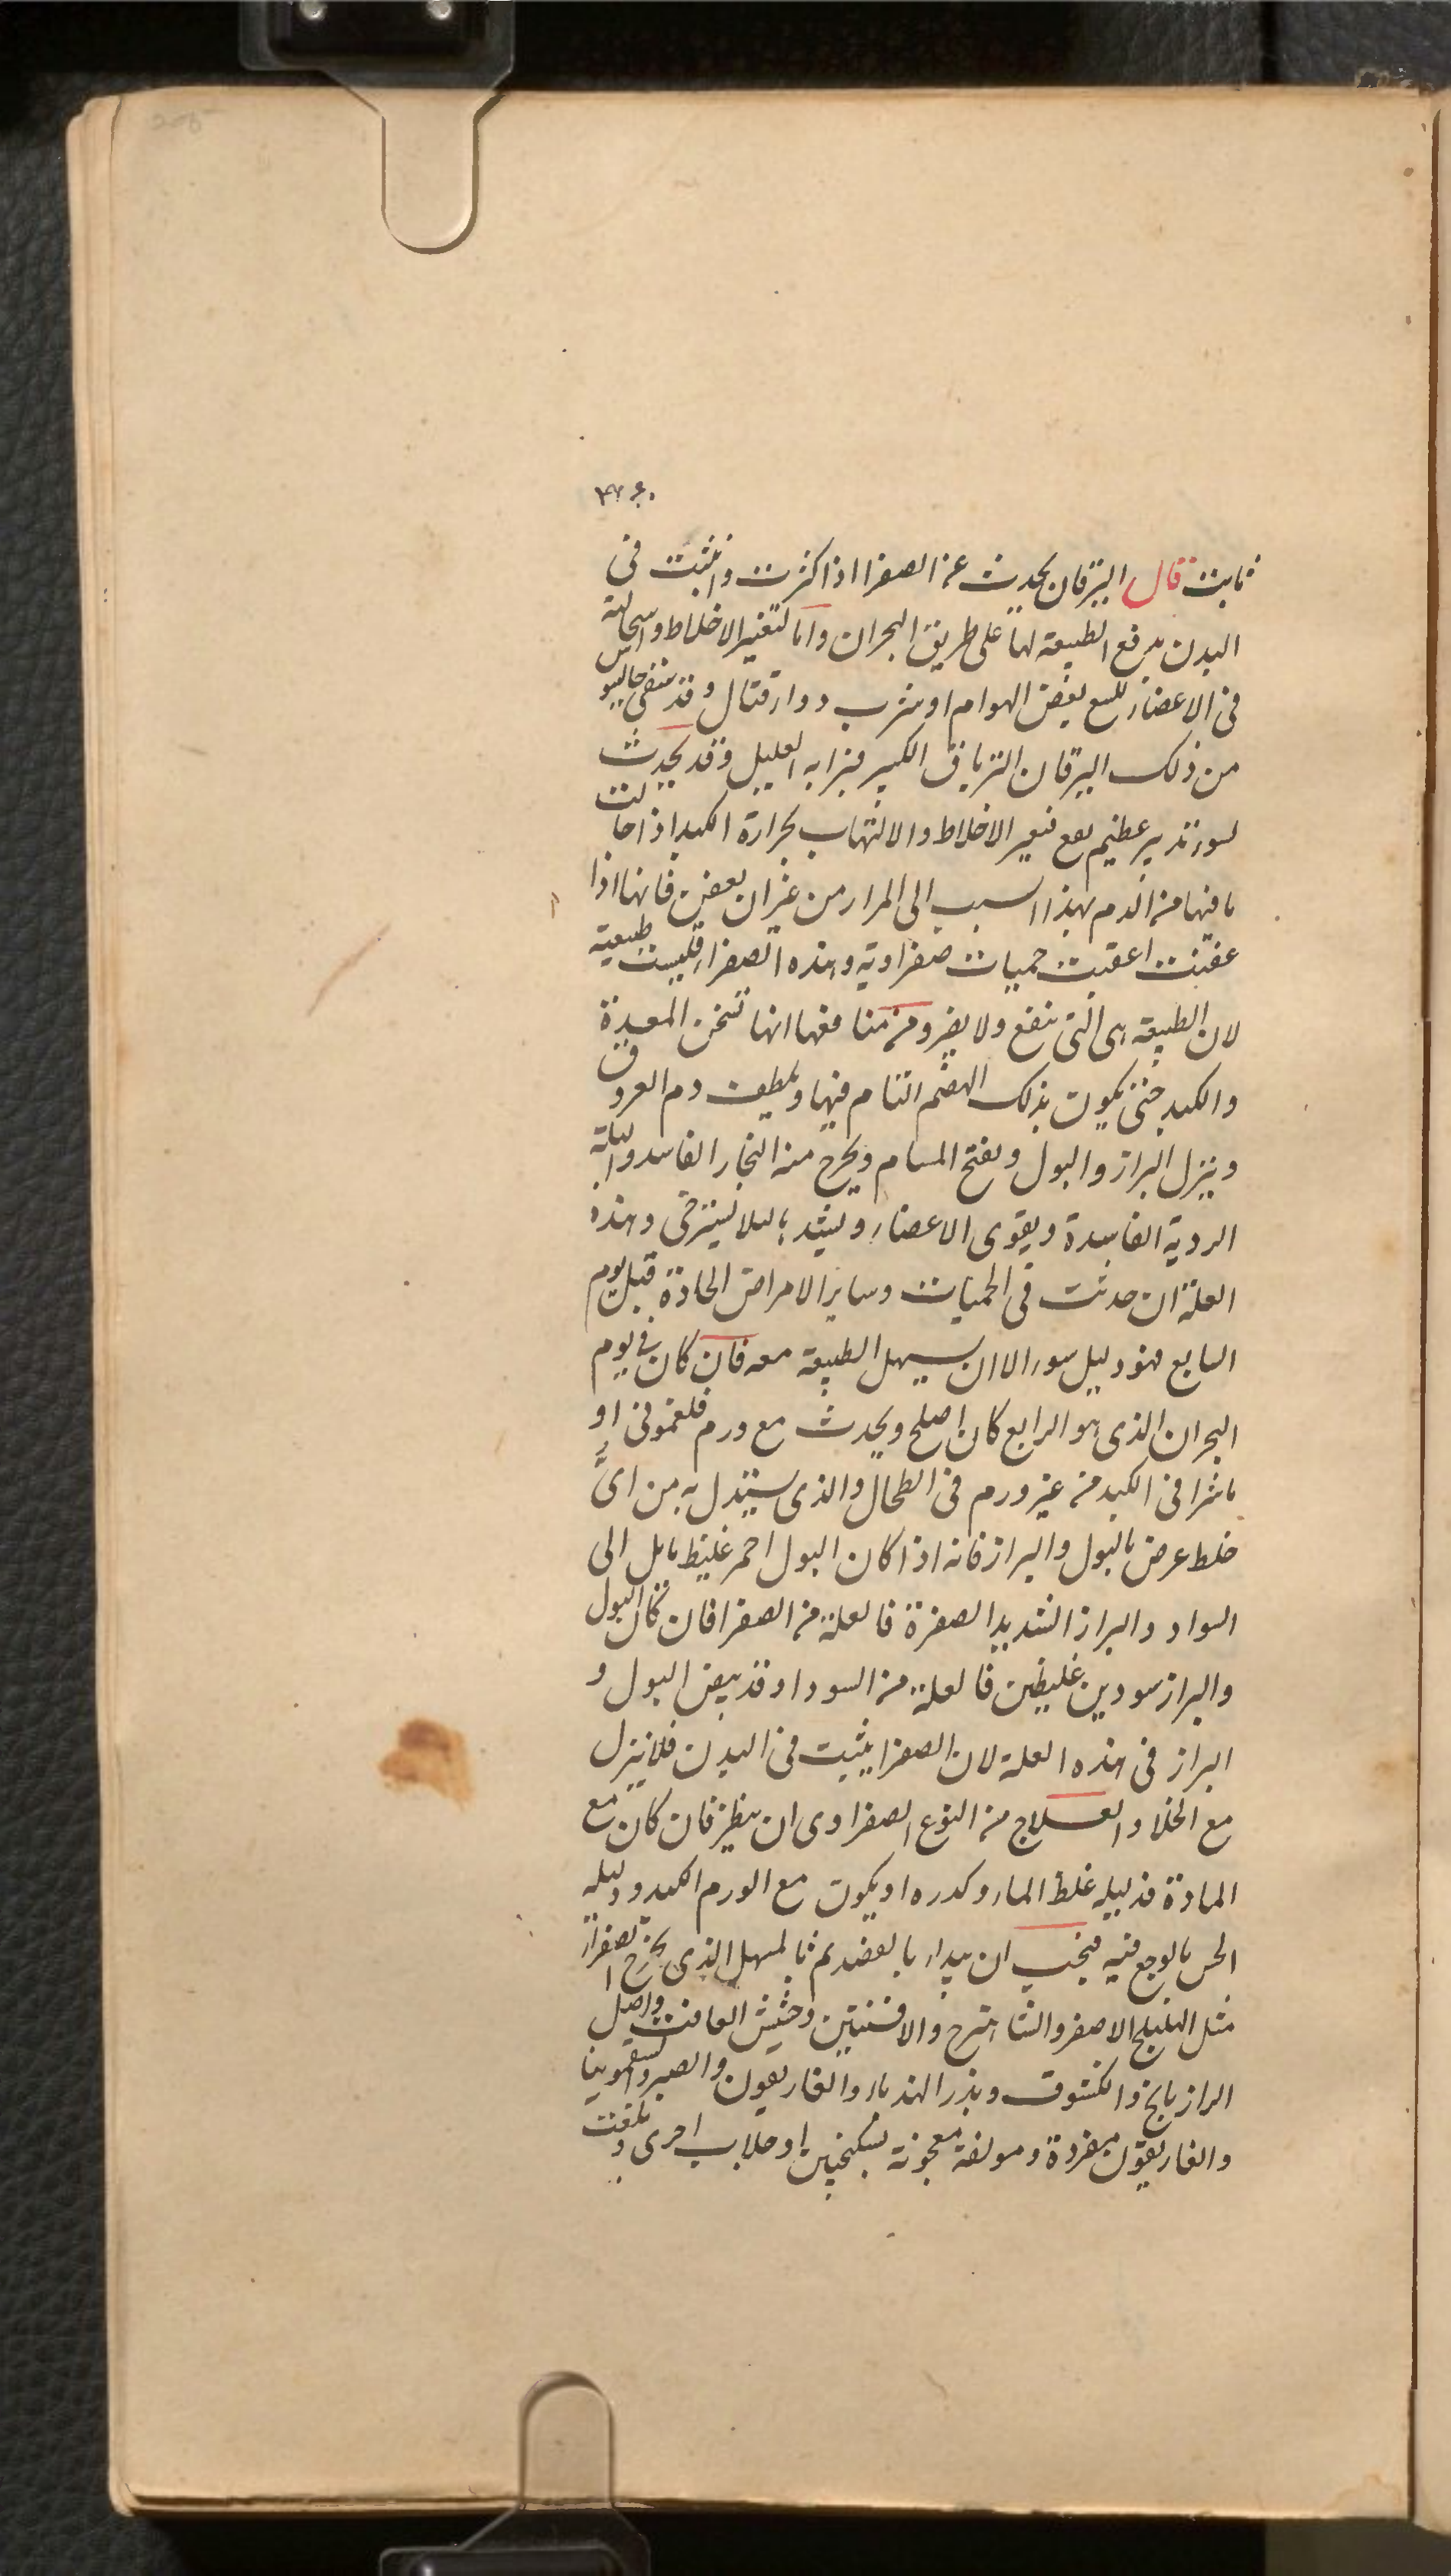 ثابت قال اليرقان يحدث عن الصفرا اذا كثرت وانبثت فى
البدن بدفع الطبيعة لها على طريق البحران واما لتغير الاخلاط واستحالة
فى الاعضاء للسع بعض الهوام او شرب دواء قتال وقد سقى جالينوس
من ذلك اليرقان الترياق الكبير فبرا به العليل وقد يحدث
لسوء تدبير عظيم يقع فتغير الاخلاط والالتهاب بحرارة الكبد اذا احالت
ما فيها من الدم بهذا السبب الى المرار من غير ان يعفن فانها اذا
عفنت اعقبت حميات صفراوية وهذه الصفراء فليست طبيعية
لان الطبيعة هى التى ينفع ولا يضر ومن منافعها انها تسخن المعدة
والكبد حتى يكون بذلك الهضم التام فيها ويلطف دم العروق
وينزل البراز والبول ويفتح المسام ويخرج منه البخار الفاسد والبلة
الردية الفاسدة ويقوى الاعضاء ويشدها لئلا يسترخى وهذه
العلة ان حدثت فى الحميات وساير الامراض الحادة قبل يوم
السابع فهو دليل سوء الا ان يسهل الطبيعة معه فان كان فى يوم
البحران الذى هو الرابع كان اصلح ويحدث مع ورم فلغمونى او
ماشرا فى الكبد من غير ورم فى الطحال والذى يستدل به من اىّ
خلط عرض بالبول والبراز فانه اذا كان البول احمر غليظ مايل الى
السواد والبراز الشديد الصفرة فالعلة من الصفرا فان كان البول
والبراز سودين غليظين فالعلة من السودا وقد يبيض البول و
البراز فى هذه العلة لان الصفرا يثبت فى البدن فلا ينزل
مع الخلا والعلاج من النوع الصفراوى ان ينظر فان كان مع
المادة فدليله غلظ الماء وكدره او يكون مع الورم الكبد ودليله
الحس بالوجع فيه فيجب ان يبدا بالفصد ثم بالمسهل الذى يخرج الصفراء
مثل الهليلج الاصفر والشاهترج والافسنتين وحشيش الغافت واصل
الرازيانج والكشوث وبزر الهندباء والغاريقون والصبر والسقمونيا
والغاريقون مفردة ومولفة معجونة بسكنجبين او جلاب اخرى و